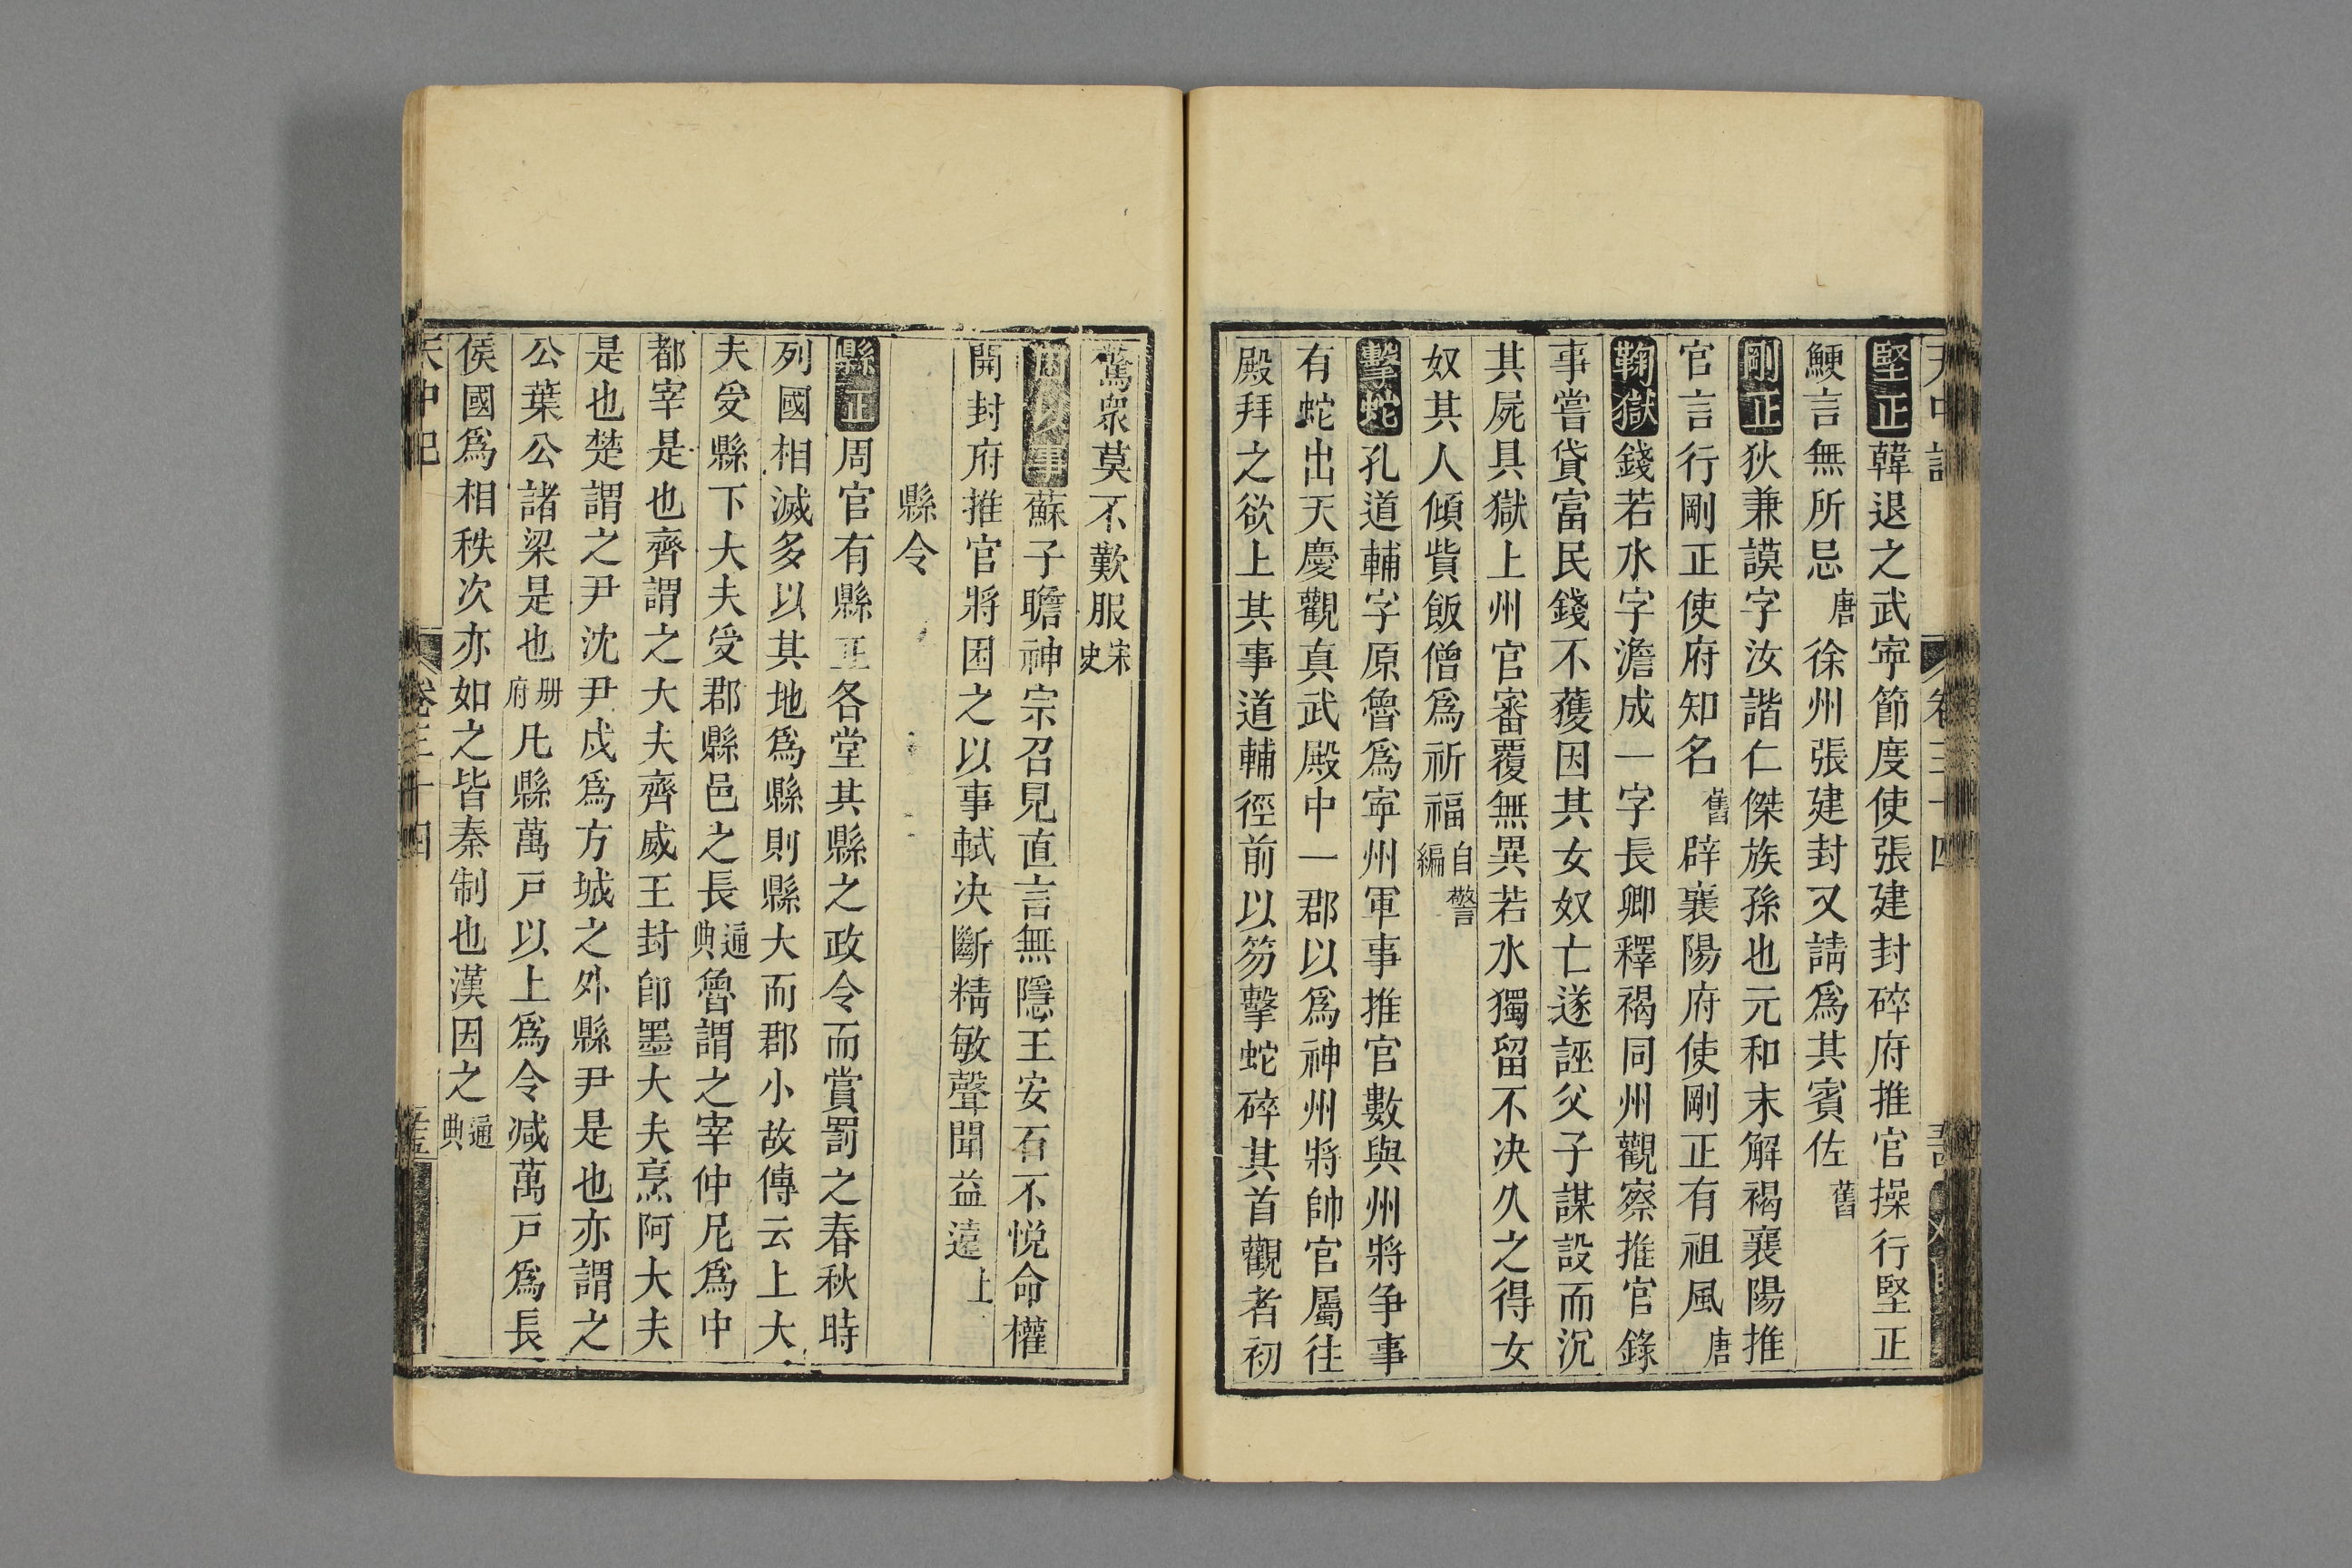 堅正韓退之武寜節度使張建封碎府推官操行堅正
鯁言無所忌唐徐州張建封又請爲其賓佐舊
剛正狄兼謨字汝諧仁傑族孫也元和末解褐襄陽推
官言行剛正使府知名舊辟襄陽府使剛正有祖風唐
鞠獄錢若水字澹成一字長卿釋褐同州觀察推官錄
事嘗貸富民錢不獲因其女奴亡遂誣父子謀設而沉
其屍具獄上州官審覆無異若水獨留不决久之得女
奴其人傾貲飯僧爲祈福自警編
擊蛇孔道輔字原魯爲寜州軍事推官數與州將争事
有蛇出天慶觀真武殿中一郡以爲神州將帥官屬往
殿拜之欲上其事道輔徑前以笏擊蛇碎其首觀者初
驚衆莫不歎服宋史
困以事蘇子瞻神宗召見直言無隱王安石不悅命權
開封府推官將困之以事軾决斷精敏聲聞益遠上
縣令
縣正周官有縣正各堂其縣之政令而賞罰之春秋時
列國相滅多以其地爲縣則縣大而郡小故傳云上大
夫受縣下大夫受郡縣邑之長通典魯謂之宰仲尼爲中
都宰是也齊謂之大夫齊威王封卽墨大夫烹阿大夫
是也楚謂之尹沈尹戌爲方城之外縣尹是也亦謂之
公葉公諸梁是也册府凡縣萬戸以上爲令减萬戸爲長
侯國爲相秩次亦如之皆秦制也漢因之通典
天中記
卷三十四